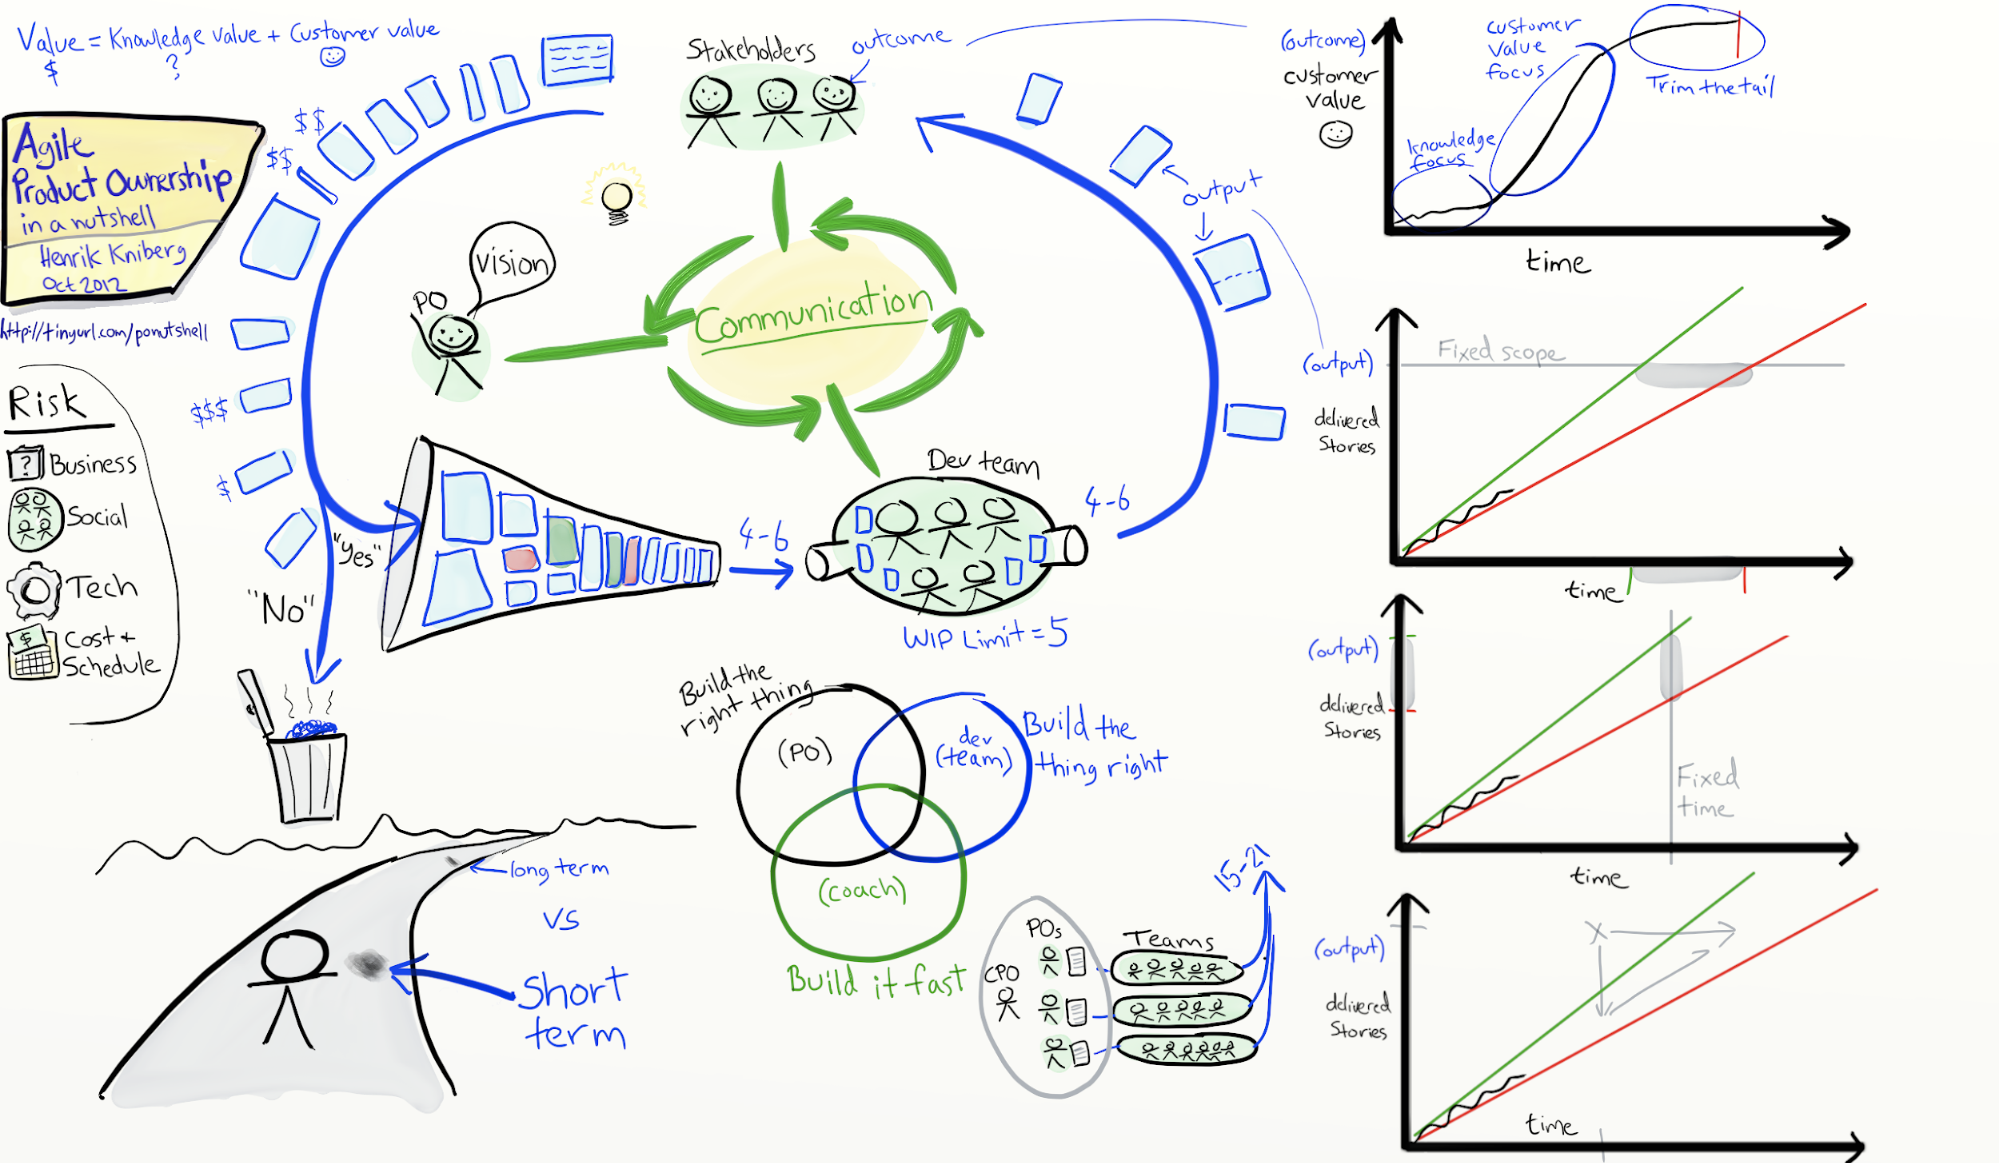 Value = Knowledge value + Customer value
$ ?
Agile
Product Ownership
in a nutshell
Henrik Kniberg
Oct 2012
http://tinyurl.com/ponutshell
Risk
? Business
Social
Tech
$ Cost +
Schedule
$$
$$
$$$
$
"Yes"
"No"
Stakeholders
outcome
PO
vision
Communication
output
4-6
Dev team
4-6
WIP Limit = 5
Build the
right thing
(PO)
dev
(team)
Build the
thing right
(coach)
Build it fast
long term
vs
Short
term
CPO
POs
Teams
15-21
(outcome)
customer
value
knowledge
focus
customer
value
focus
Trim the tail
time
(output)
delivered
Stories
Fixed scope
time
(output)
delivered
Stories
Fixed
time
time
(output)
delivered
Stories
X
time